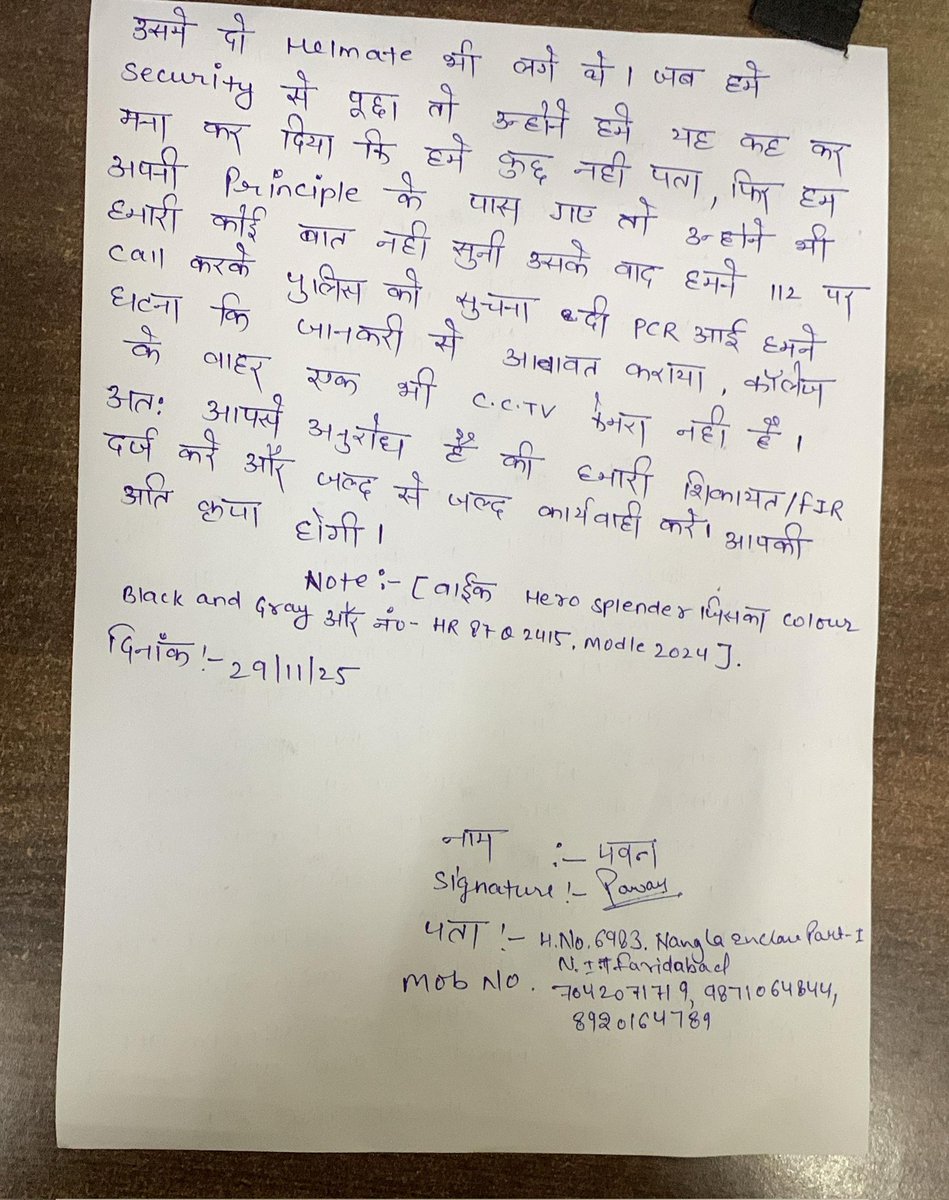 उसमे दो Helmate भी लगे थे। जब हमे
security से पूछा तो उन्होने हमे यह कह कर
मना कर दिया कि हमे कुछ नही पता, फिर हम
अपनी Principle के पास गए तो उन्होने भी
हमारी कोई बात नही सुनी उसके बाद हमने 112 पर
call करके पुलिस को सुचना दी PCR आई हमने
घटना कि जानकरी से कराया, कॉलेज
के बाहर एक भी C.C.TV कैमरा नही है।
अतः आपसे अनुरोध है की हमारी शिकायत/FIR
दर्ज करे और जल्द से जल्द कार्यवाही करे। आपकी
अति कृपा होगी।
Note:- [ बाईक Hero splender जिसका colour
Black and Gray और नं०- HR 87 Q 2415, Modle 2024 ].
दिनाँक:- 29/11/25
नाम :- पवन
Signature:- Pawan
पता:- H.No. 6983, Nangla enclave Part-I
N.I.T. Faridabad
Mob No. 7042071719, 9871064844,
8920164789